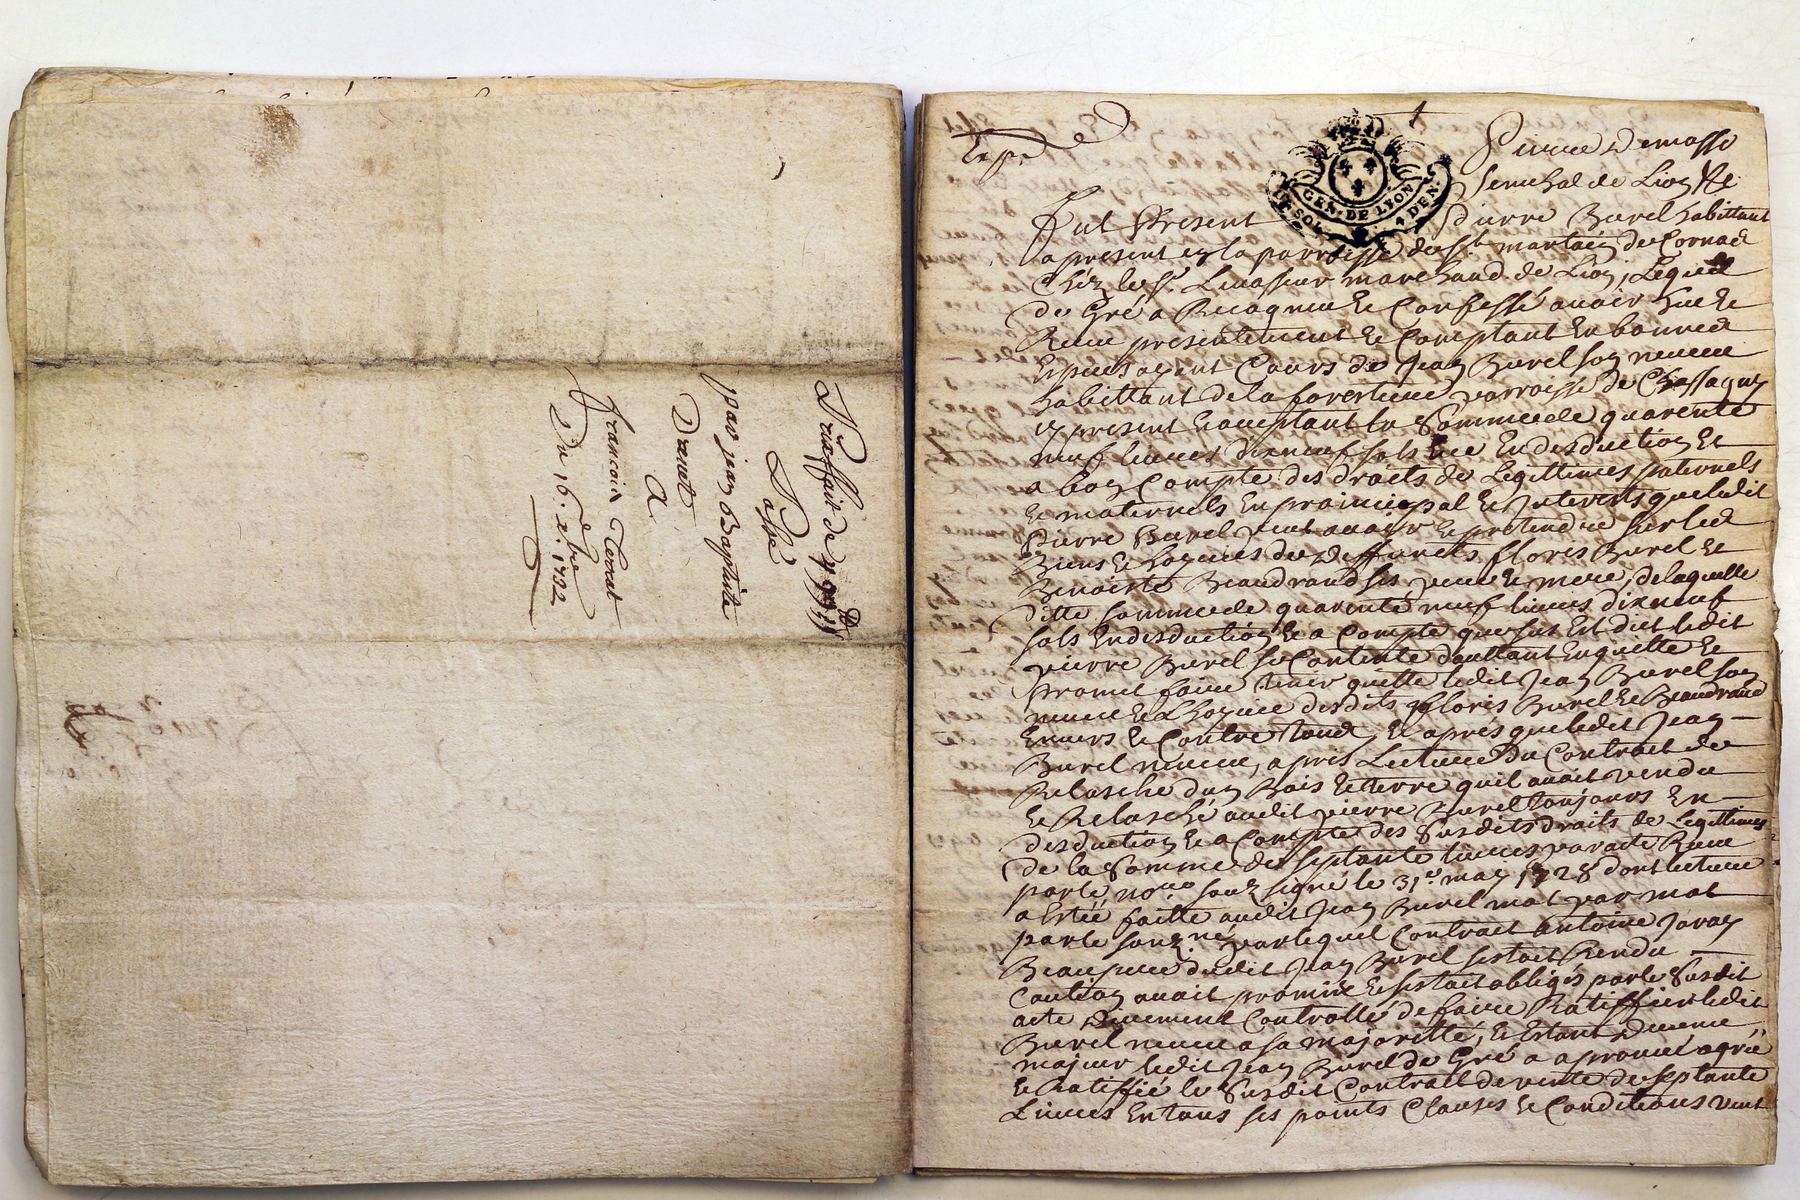 Passé
par jean Baptiste
Dranet
A
francois Terrat
Du 16. xbre 1732
Expé
GEN. DE LYON
4 DEN.
Pierre Demasso
senechal de Lion &c
Fut Present Pierre Burel habittant
a present en la parroisse de St. martin de Cornas
Chéz le Sr. Levasseur marchand de Lion, Lequel
de Gré a Recognu Et Confessé avoir Heu Et
Receu presentement Et Comptant En bonnes
Especes ayent Cours de Jean Burel son neveu
habittant de la forestiere parroisse de Chassagny
icy present Et acceptant la Somme de quarente
neuf livres dixneuf sols Et ce En desduction Et
a bon Compte des droits de Legittimes paternels
Et maternels En principal Et Interests que ledit
Pierre Burel peut avoir Et pretendre sur les
Biens Et hoyries des deffuncts floris Burel Et
Benoiste Beaudrand ses pere Et mere, de laquelle
ditte somme de quarente neuf livres dixneuf
sols En desduction Et a Compte que sus Est dict ledit
pierre Burel se Contente d'auttant En quitte Et
promet faire tenir quitte ledit Jean Burel son
neveu Et L'hoyrie desdits floris Burel Et Beaudrand
Envers Et Contre tous, Et aprés que ledit Jean
Burel neveu, aprés Lecture du Contract de
Relasche d'un Bois Et terre qu'il avoit vendu
Et Relasché audit pierre Burel toujours En
desduction Et a Compte des Susdits droits de Legittimes
de la Somme de septante livres par acte Receu
par le nore. souz signé le 31e. may 1728 dont lecture
a Esteé faitte audit Jean Burel mot par mot
par le souz.né par lequel Contract Antoine Javay
Beaupere dudit Jean Burel sestoit Rendu
Caution avoit promis Et sestoit obligés par le Susdit
acte deuement Controllé de faire Ratiffier ledit
Burel neveu a sa majoritté, Et Estant devenu
majeur ledit Jean Burel de Gré a aprouvé agrée
Et Ratiffié le Susdit Contract de vente de septante
Livres En tous ses points Clauses Et Conditions veut